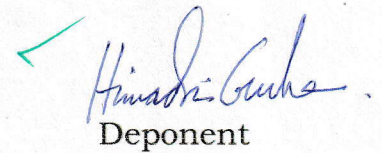 Himadri Guha.
Deponent